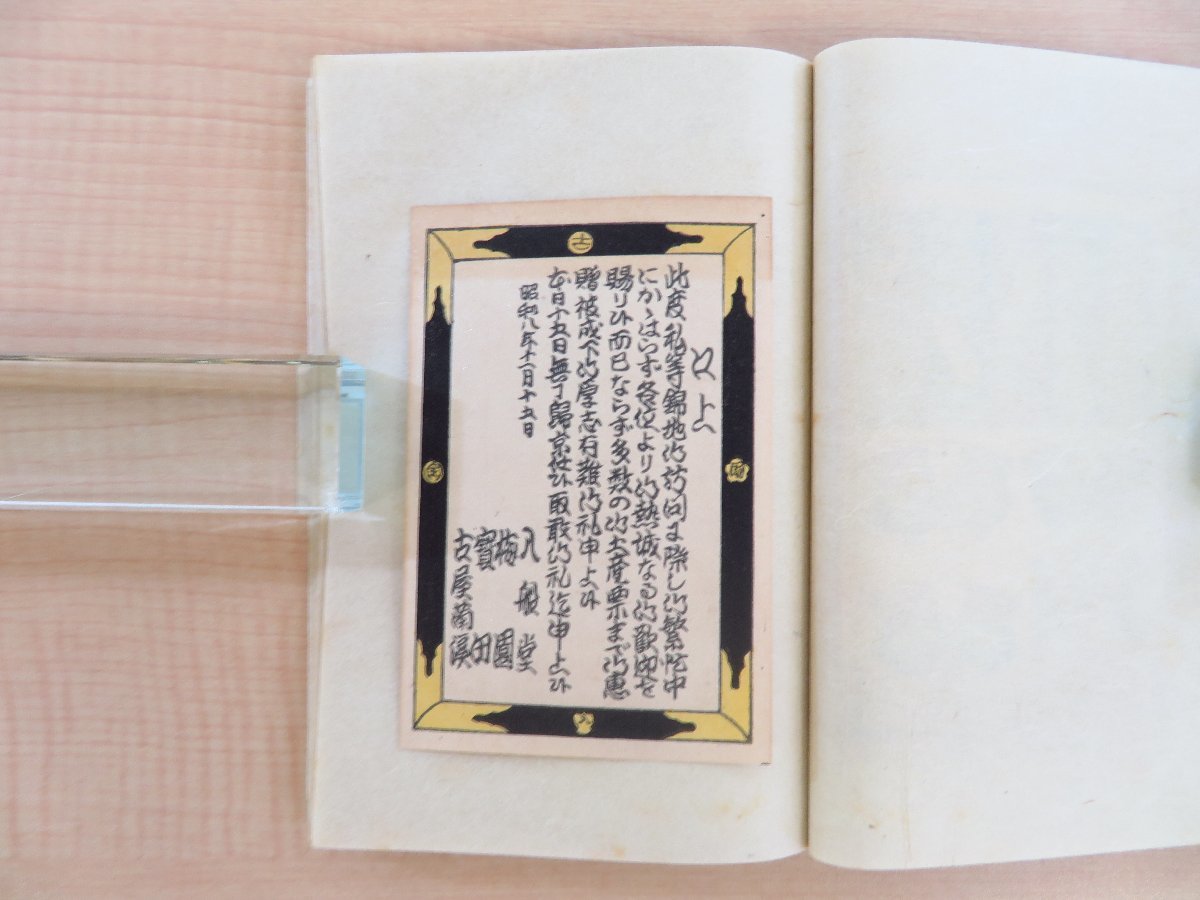 口上
此度私等錦地御訪問に際し御繁忙中
にかゝはらず各位より御熱誠なる御歓迎を
賜り候而已ならず多数の御土産票まで御恵
贈被成下御厚志有難御礼申上候
本日十五日無事帰京仕候取敢御礼迄申上候
昭和八年十一月十五日
八般堂
梅園
寳田
古屋蘭溪
古